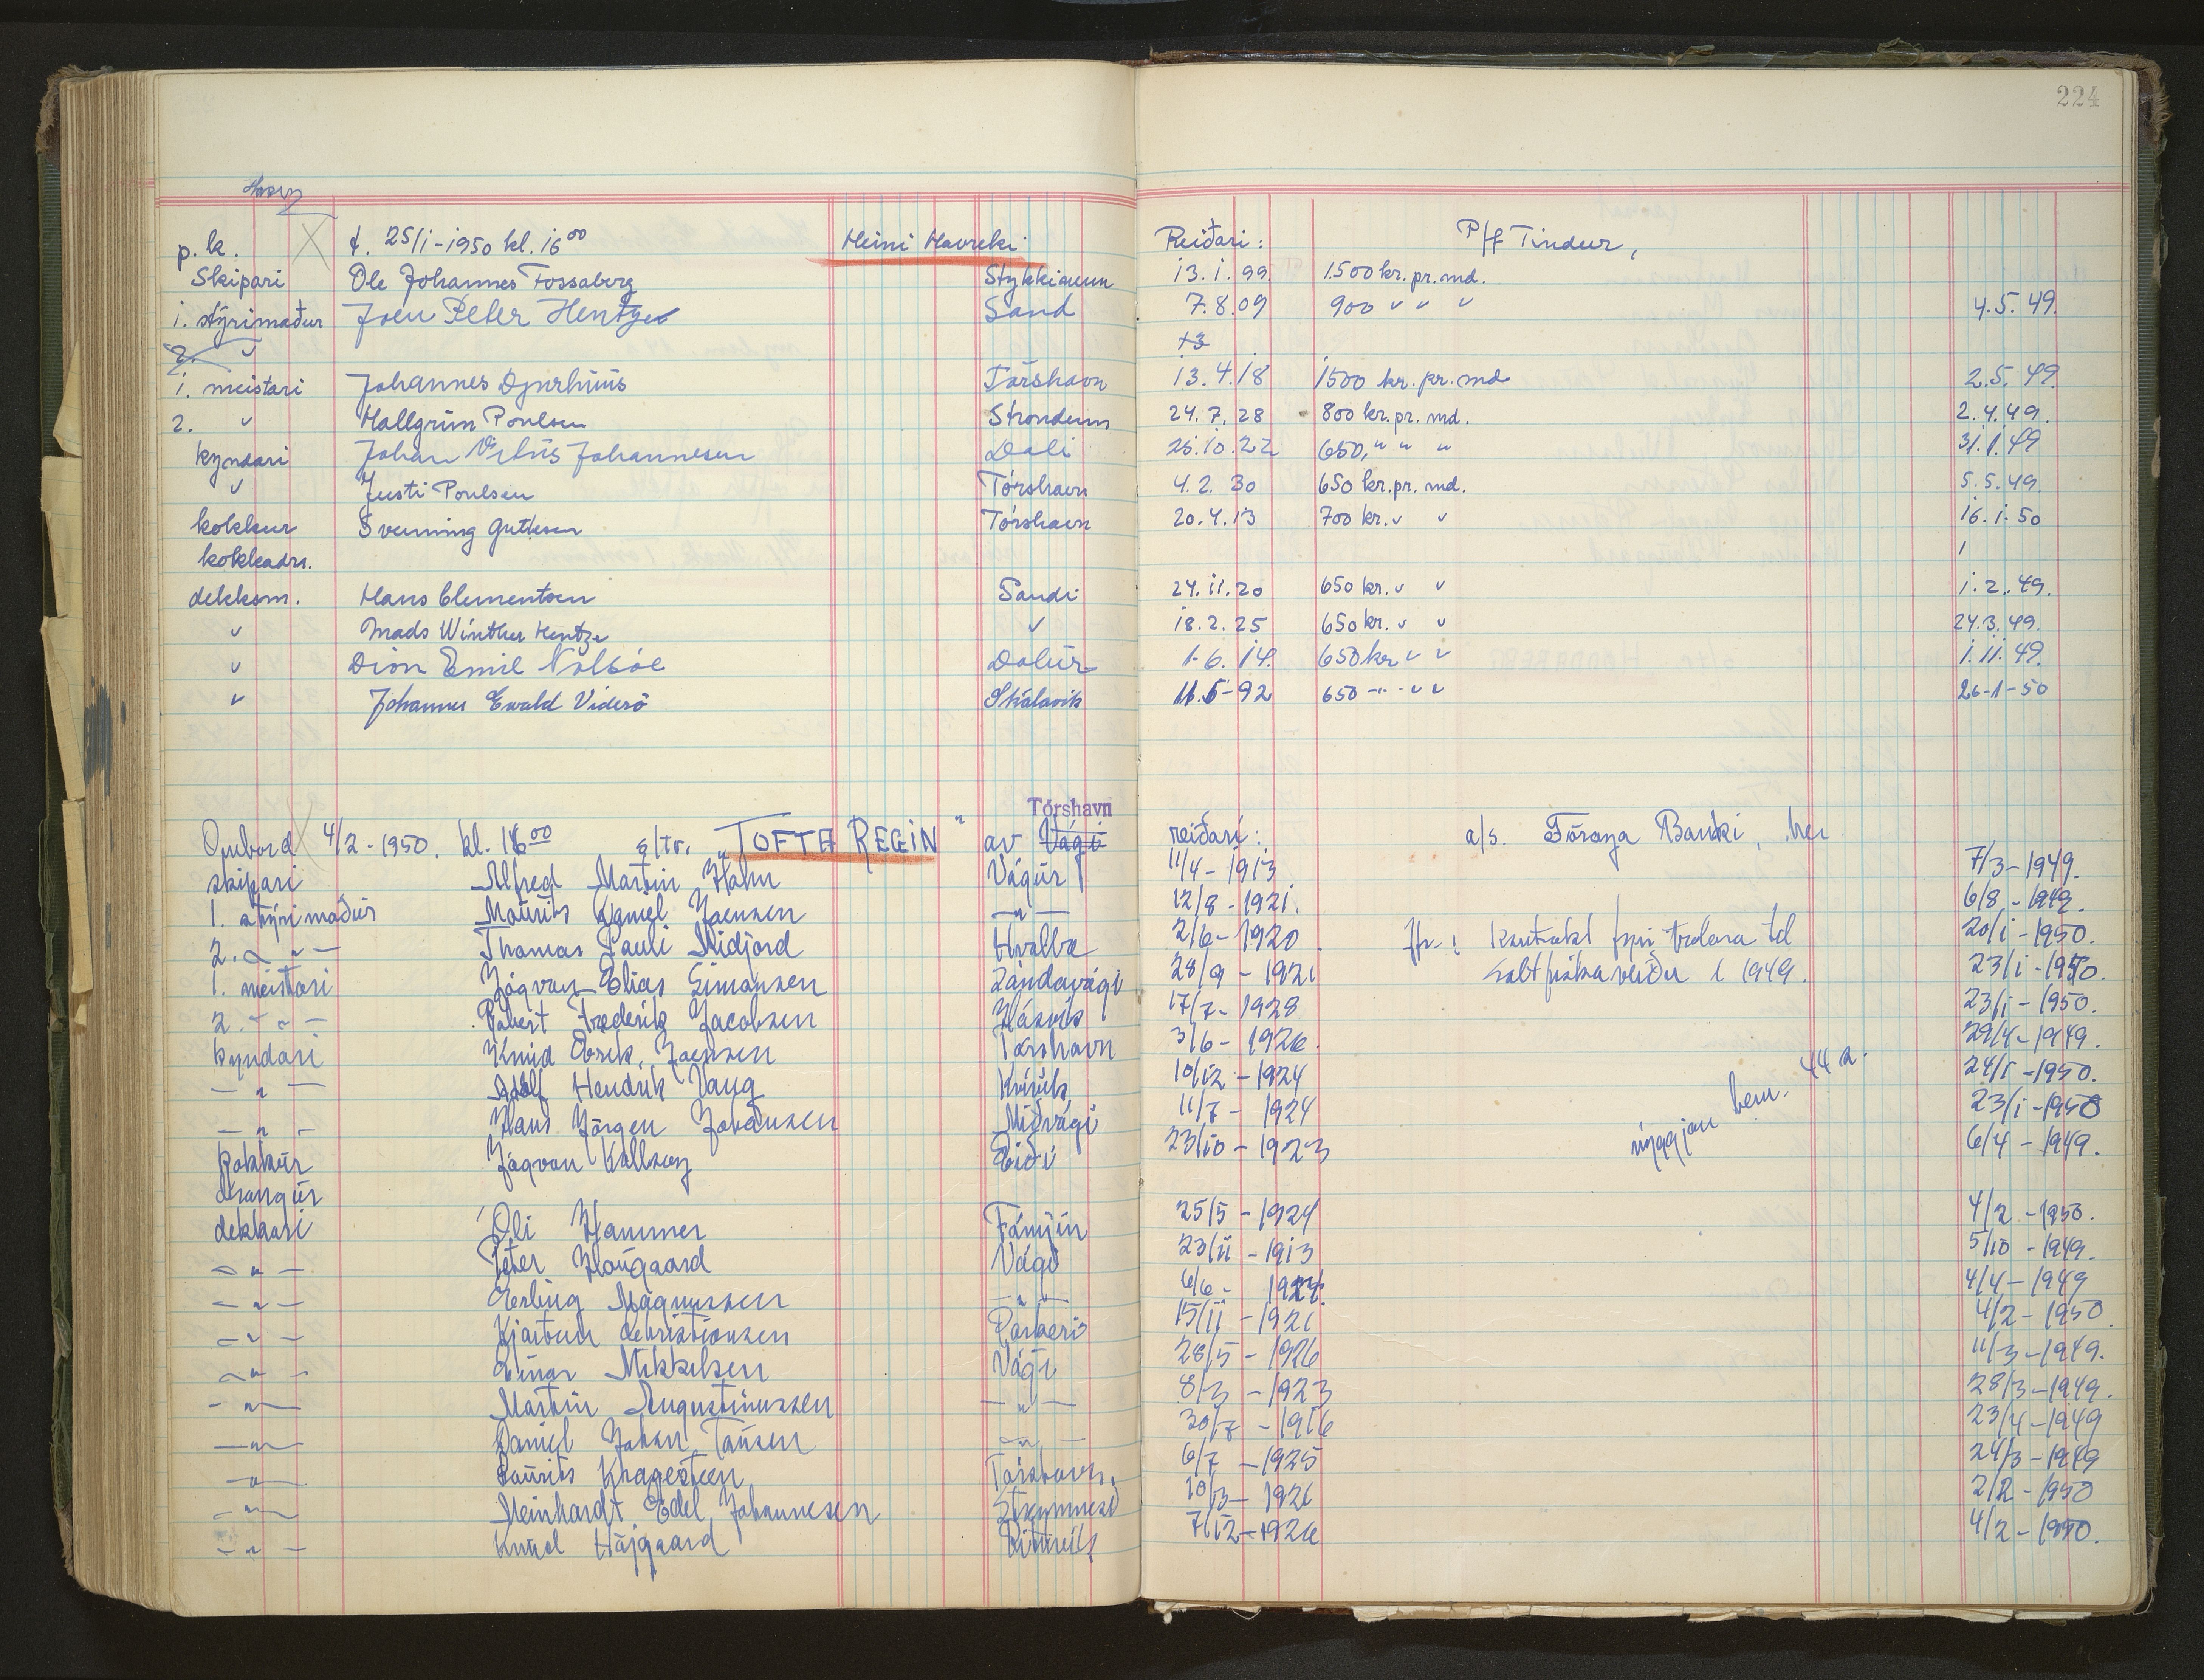 224
p. k. d. 25/1-1950 kl. 16 00 Heini Havreki Reiðari: P/f Tindur,
Skipari Ole Johannes Fossaberg Stykkinum 13.1.99. 1500 kr. pr. md.
1. stýrimaður Joen Peter Hentze Sand 7.8.09 900 " " " 4.5.49.
2. " 13
1. meistari Johannes Djurhuus Tórshavn 13.4.18 1500 kr. pr. md 2.5.49.
2. " Hallgrim Poulsen Strondum 24.7.28 800 kr. pr. md. 2.4.49.
kyndari Johan Johannesen Dali 25.10.22 650, " " " 31.1.49
" Justi Poulsen Tórshavn 4.2.30 650 kr. pr. md. 5.5.49.
kokkur Svenning Guttesen Tórshavn 20.4.13 700 kr. " " 16.1.50
kokkadr.
dekksm. Hans Clementsen Sandi 24.11.20 650 kr. " " 1.2.49.
" Mads Winther Hentze " 18.2.25 650 kr. " " 24.3.49.
" Dion Emil Nolsöe Dalur 1-6.14. 650 kr " " 1.11.49.
" Johannes Ewald Viderö Skálavik 11.5-92 650 -"- " " 26-1-50
Tórshavn
Ombord 4/2-1950. kl. 16 00 s/tr. "TOFTA REGIN" av Vági reiðari: a/s. Föroya Banki, her
skipari Alfred Martin Hahn Vágur 11/4-1913 7/3-1949.
1. stýrimaður Maurits Daniel Joensen -"- 12/8-1921. 6/8-1949.
2. -"- Thomas Pauli Midjord Hvalba 2/6-1920 Hr.: Kontrakt fyri tralara td 20/1-1950.
1. meistari Jógvan Elias Simonsen Sandavági 28/9-1921 saltfiskaveiðu í 1949. 23/1-1950.
2. -"- Robert Frederik Jacobsen Húsvik 17/7-1928 23/1-1950.
kyndari Knud Jacobsen Tórshavn 3/6-1926. 29/4-1949.
-"- Adolf Hendrik Vang Kvivik 10/12-1924 44 a. 24/1-1950.
-"- Hans Jörgen Johansen Miðvági 11/7-1924 23/1-1950
kokkur Jógvan Kallsoy Eiði 23/10-1923 6/4-1949.
drongur
dekkari Oli Hammer Fámjin 25/5-1924 4/2-1950.
-"- Peter Hougaard Vági 23/11-1913 5/10-1949.
-"- Erling Magnussen -"- 6/6-1924. 4/4-1949
-"- Kjartan Christiansen Porkeri 15/11-1921 4/2-1950.
-"- Einar Mikkelsen Vági 28/5-1926 11/3-1949.
-"- Martin Augustinussen -"- 8/3-1923 28/3-1949.
-"- Daniel Johan Tausen -"- 30/7-1916 23/4-1949
-"- Laurits Kragesteen Tórshavn. 6/7-1925 24/3-1949
-"- Meinhardt Edel Johannesen Strymnesi 10/3-1921 2/2-1950
-"- Knud Højgaard Rituvik 7/12-1926 4/2-1950.